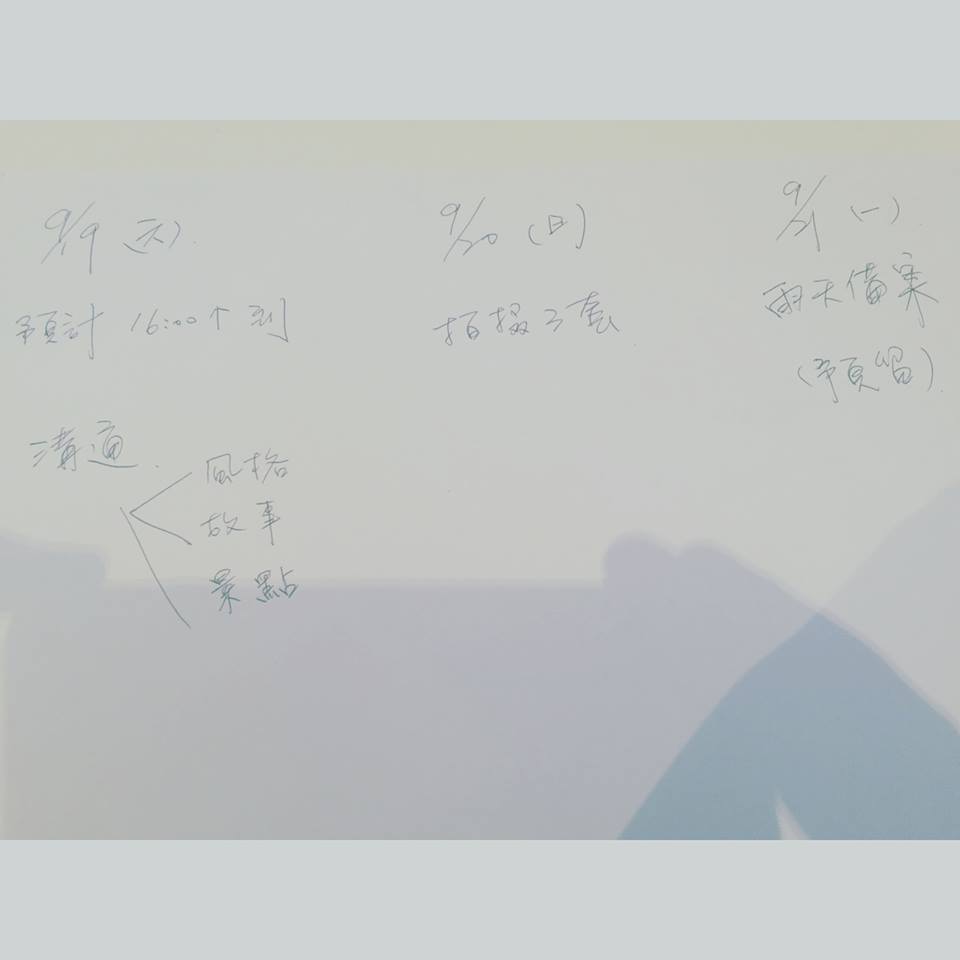 9/19 (六)
預計 16:00↑ 到
溝通
風格
故事
景點
9/20 (日)
拍攝3套
9/21 (一)
雨天備案
(預留)